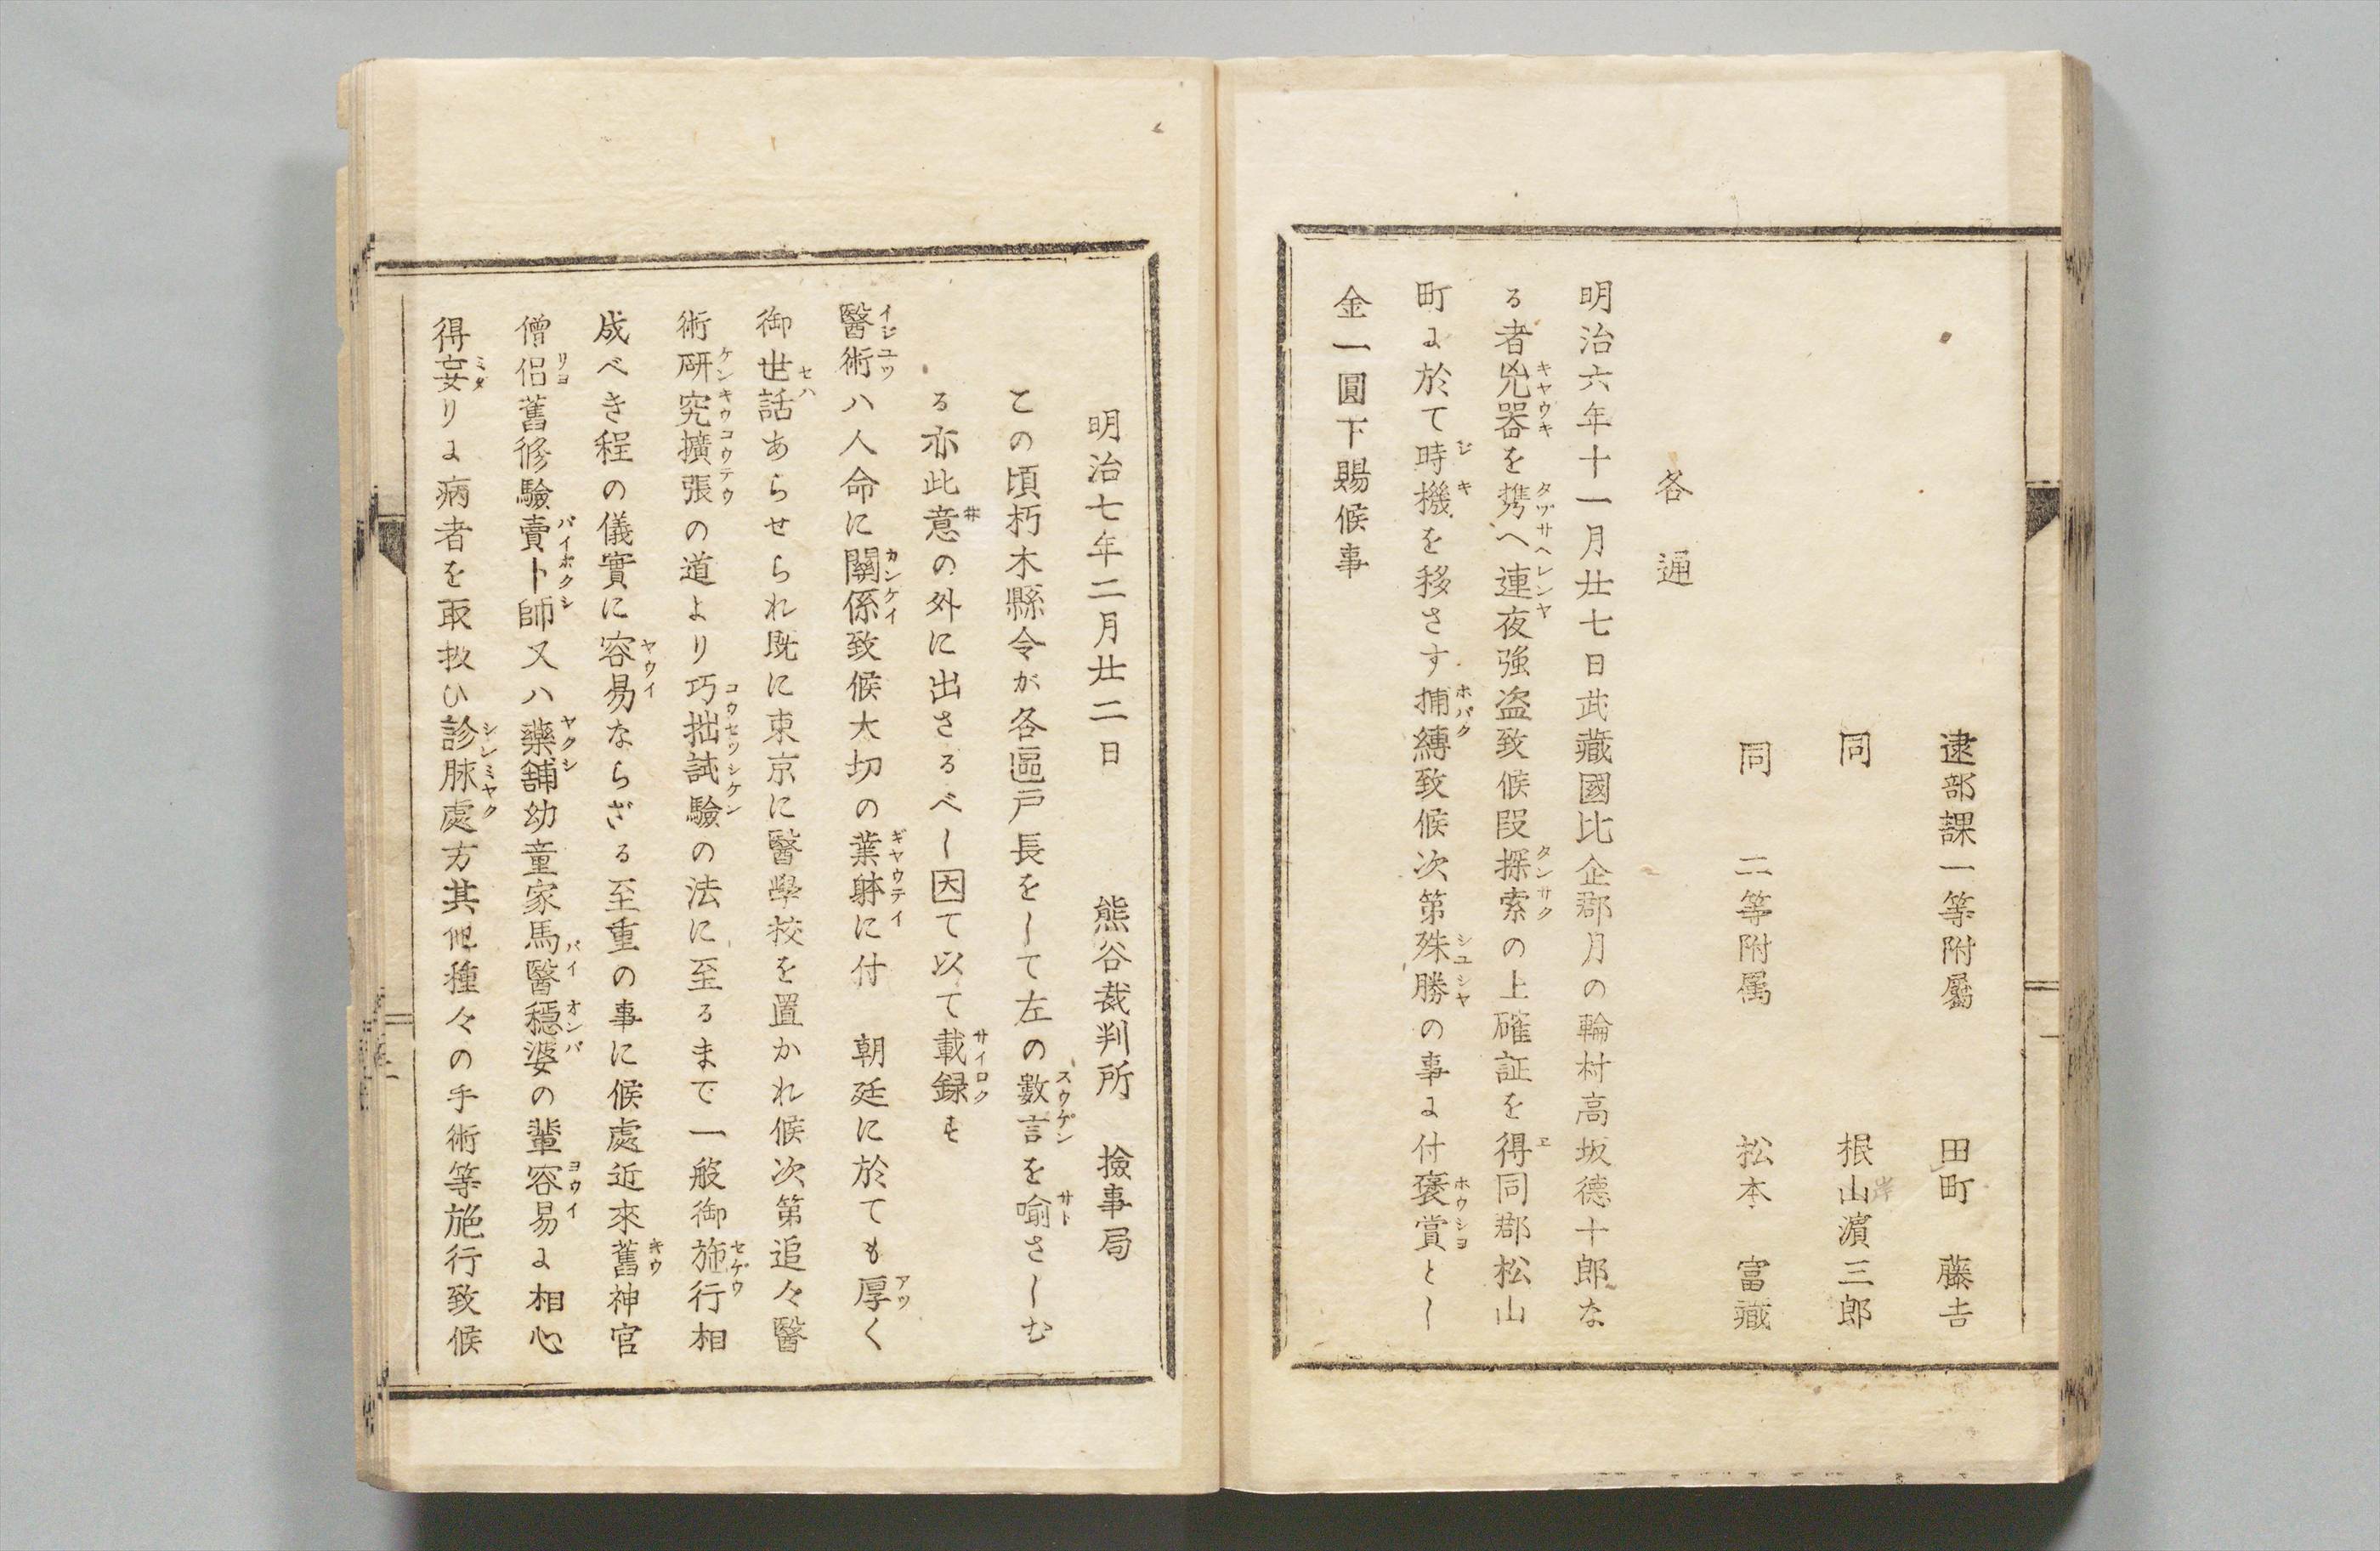 逮部課一等附屬　田町　藤吉
同　根山濱三郎
岸
同　二等附属　松本　富藏
各　通
明治六年十一月廿七日武藏國比企郡月の輪村高坂德十郎な
る者兇器を携へ連夜強盗致候段探索の上確証を得同郡松山
町に於て時機を移さす捕縛致候次第殊勝の事に付褒賞とし
金一圓下賜候事
明治七年二月廿二日　熊谷裁判所　撿事局
この頃朽木縣令が各區戸長をして左の數言を喻さしむ
る亦此意の外に出さるべし因て以て載録す
醫術ハ人命に關係致候大切の業躰に付　朝廷に於ても厚く
御世話あらせられ既に東京に醫學校を置かれ候次第追々醫
術研究擴張の道より巧拙試驗の法に至るまで一般御施行相
成べき程の儀實に容易ならざる至重の事に候處近來舊神官
僧侶舊修驗賣卜師又ハ藥舗幼童家馬醫穩婆の輩容易に相心
得妄りに病者を取扱ひ診脉處方其他種々の手術等施行致候